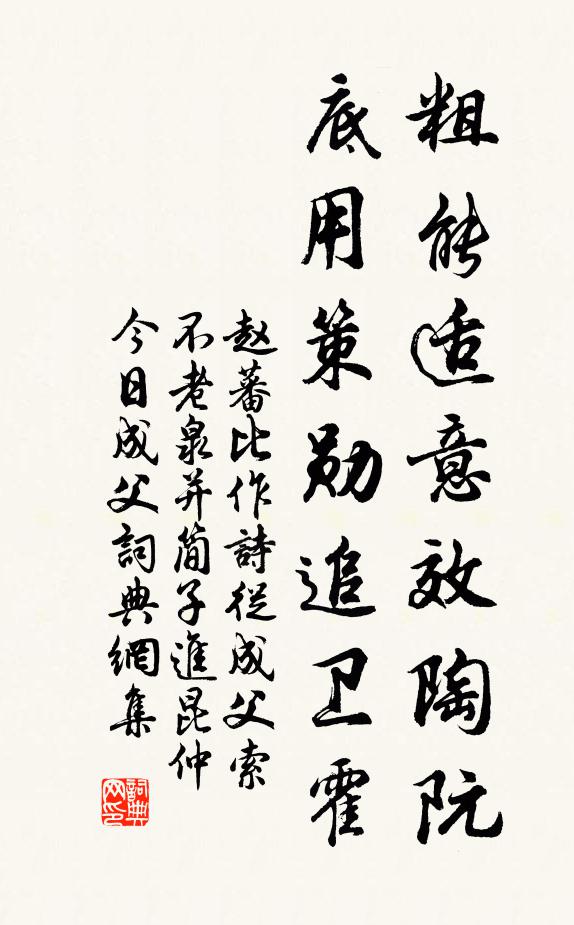 粗能适意效陶阮
底用策勋追卫霍
赵蕃比作詩從成父索
不老泉并简子進昆仲
今日成父詞典網集
詞典网印